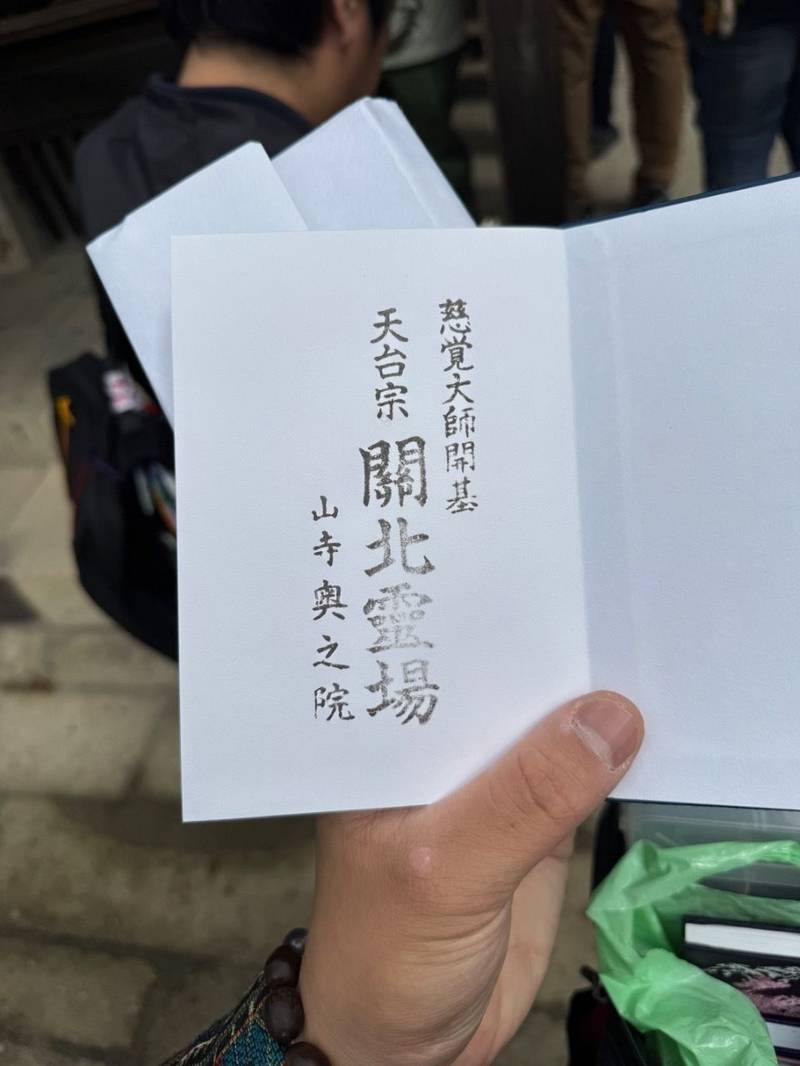 慈覚大師開基
天台宗 關北靈場
山寺奥之院